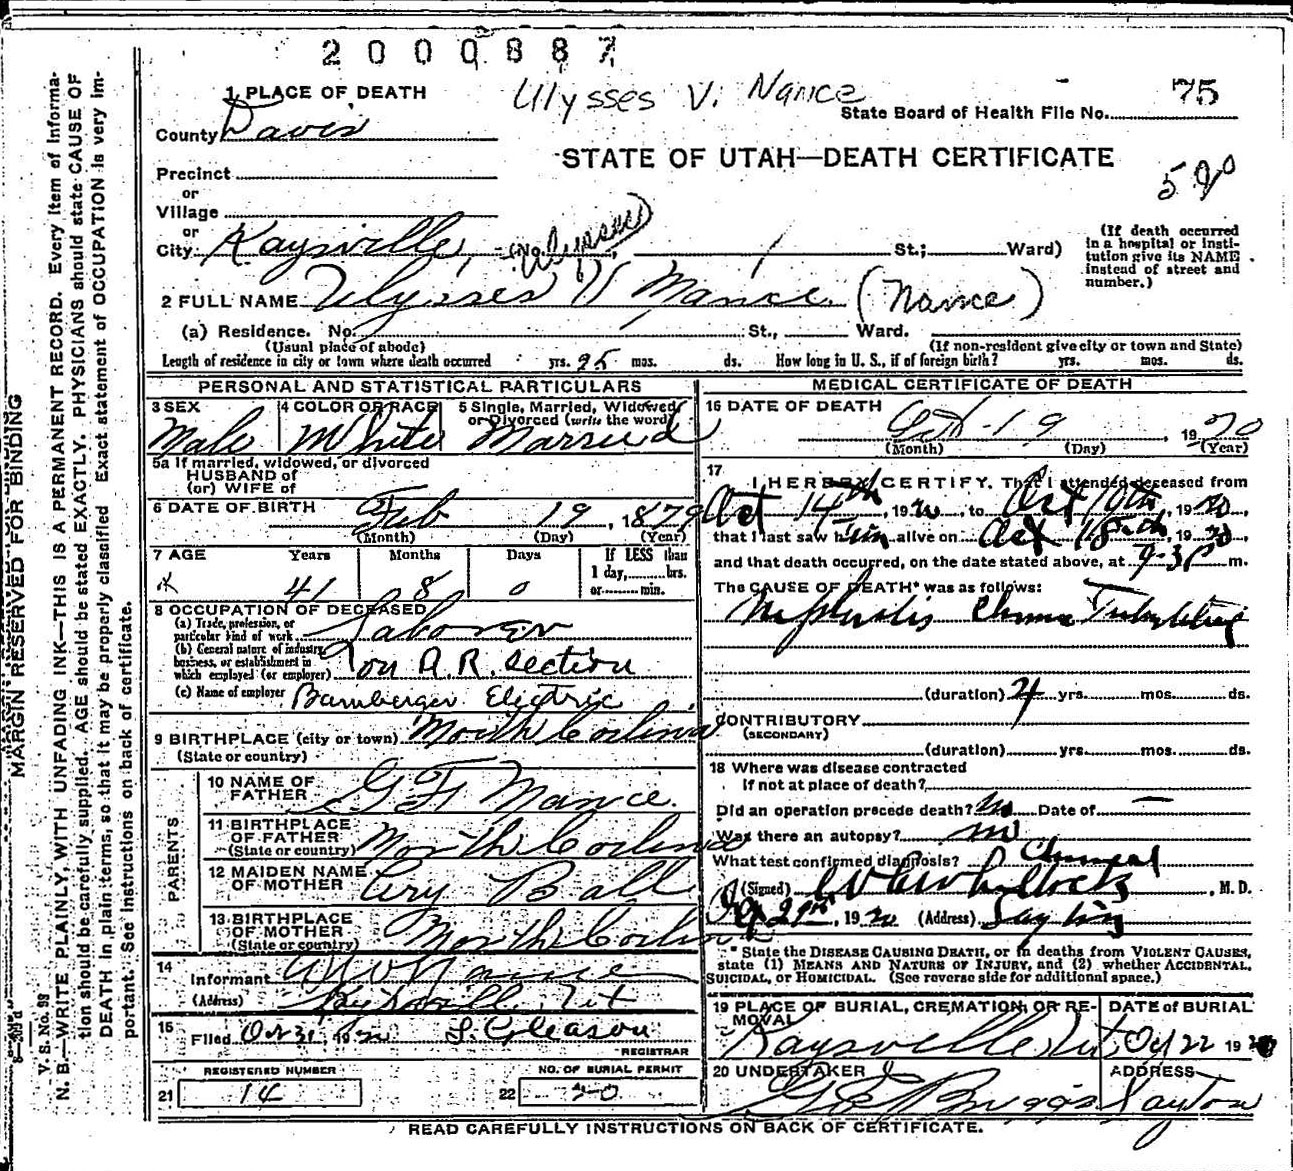 2000887
1 PLACE OF DEATH
Ulysses V. Nance
State Board of Health File No. 75
County Davis
STATE OF UTAH—DEATH CERTIFICATE
590
Precinct
or
Village
or
City Kaysville, (No. Ulysses) St.; Ward)
(If death occurred in a hospital or institution give its NAME instead of street and number.)
2 FULL NAME Ulysses V Nance (Nance)
(a) Residence. No. St., Ward.
(Usual place of abode) (If non-resident give city or town and State)
Length of residence in city or town where death occurred yrs. 25 mos. ds. How long in U. S., if of foreign birth? yrs. mos. ds.
PERSONAL AND STATISTICAL PARTICULARS
3 SEX Male
4 COLOR OR RACE White
5 Single, Married, Widowed, or Divorced (write the word) Married
5a If married, widowed, or divorced
HUSBAND of
(or) WIFE of
6 DATE OF BIRTH Feb 19, 1879
(Month) (Day) (Year)
7 AGE Years Months Days If LESS than
1 day, hrs.
or min.
41 8 0
8 OCCUPATION OF DECEASED
(a) Trade, profession, or particular kind of work Laborer
(b) General nature of industry, business, or establishment in which employed (or employer) on R. R. section
(c) Name of employer Bamberger Electric
9 BIRTHPLACE (city or town) North Carolina
(State or country)
PARENTS
10 NAME OF FATHER G F Nance
11 BIRTHPLACE OF FATHER (State or country) North Carolina
12 MAIDEN NAME OF MOTHER Ball
13 BIRTHPLACE OF MOTHER (State or country) North Carolina
14 Informant Nance
(Address) Kaysville, Ut
15 Filed Oct 31 1920 S. Gleason
REGISTRAR
REGISTERED NUMBER
21 14
NO. OF BURIAL PERMIT
22 20
MEDICAL CERTIFICATE OF DEATH
16 DATE OF DEATH Oct 19, 1920
(Month) (Day) (Year)
17 I HEREBY CERTIFY, That I attended deceased from
Oct 14th, 1920, to Oct 19th, 1920,
that I last saw him alive on Oct 18th, 1920,
and that death occurred, on the date stated above, at 9-3 m.
The CAUSE OF DEATH* was as follows:
(duration) yrs. mos. ds.
CONTRIBUTORY
(SECONDARY)
(duration) yrs. mos. ds.
18 Where was disease contracted
if not at place of death?
Did an operation precede death? no Date of —
Was there an autopsy? no
What test confirmed diagnosis? Chemical
(Signed) , M. D.
29th, 1920 (Address) Layton
* State the DISEASE CAUSING DEATH, or in deaths from VIOLENT CAUSES,
state (1) MEANS AND NATURE OF INJURY, and (2) whether ACCIDENTAL,
SUICIDAL, or HOMICIDAL. (See reverse side for additional space.)
19 PLACE OF BURIAL, CREMATION, OR REMOVAL Kaysville, Ut
DATE of BURIAL Oct 22 1920
20 UNDERTAKER Geo E Briggs
ADDRESS Layton
READ CAREFULLY INSTRUCTIONS ON BACK OF CERTIFICATE.
MARGIN RESERVED FOR BINDING
V. S. No. 98
N. B.—WRITE PLAINLY, WITH UNFADING INK—THIS IS A PERMANENT RECORD. Every item of information should be carefully supplied. AGE should be stated EXACTLY. PHYSICIANS should state CAUSE OF DEATH in plain terms, so that it may be properly classified. Exact statement of OCCUPATION is very important. See instructions on back of certificate.